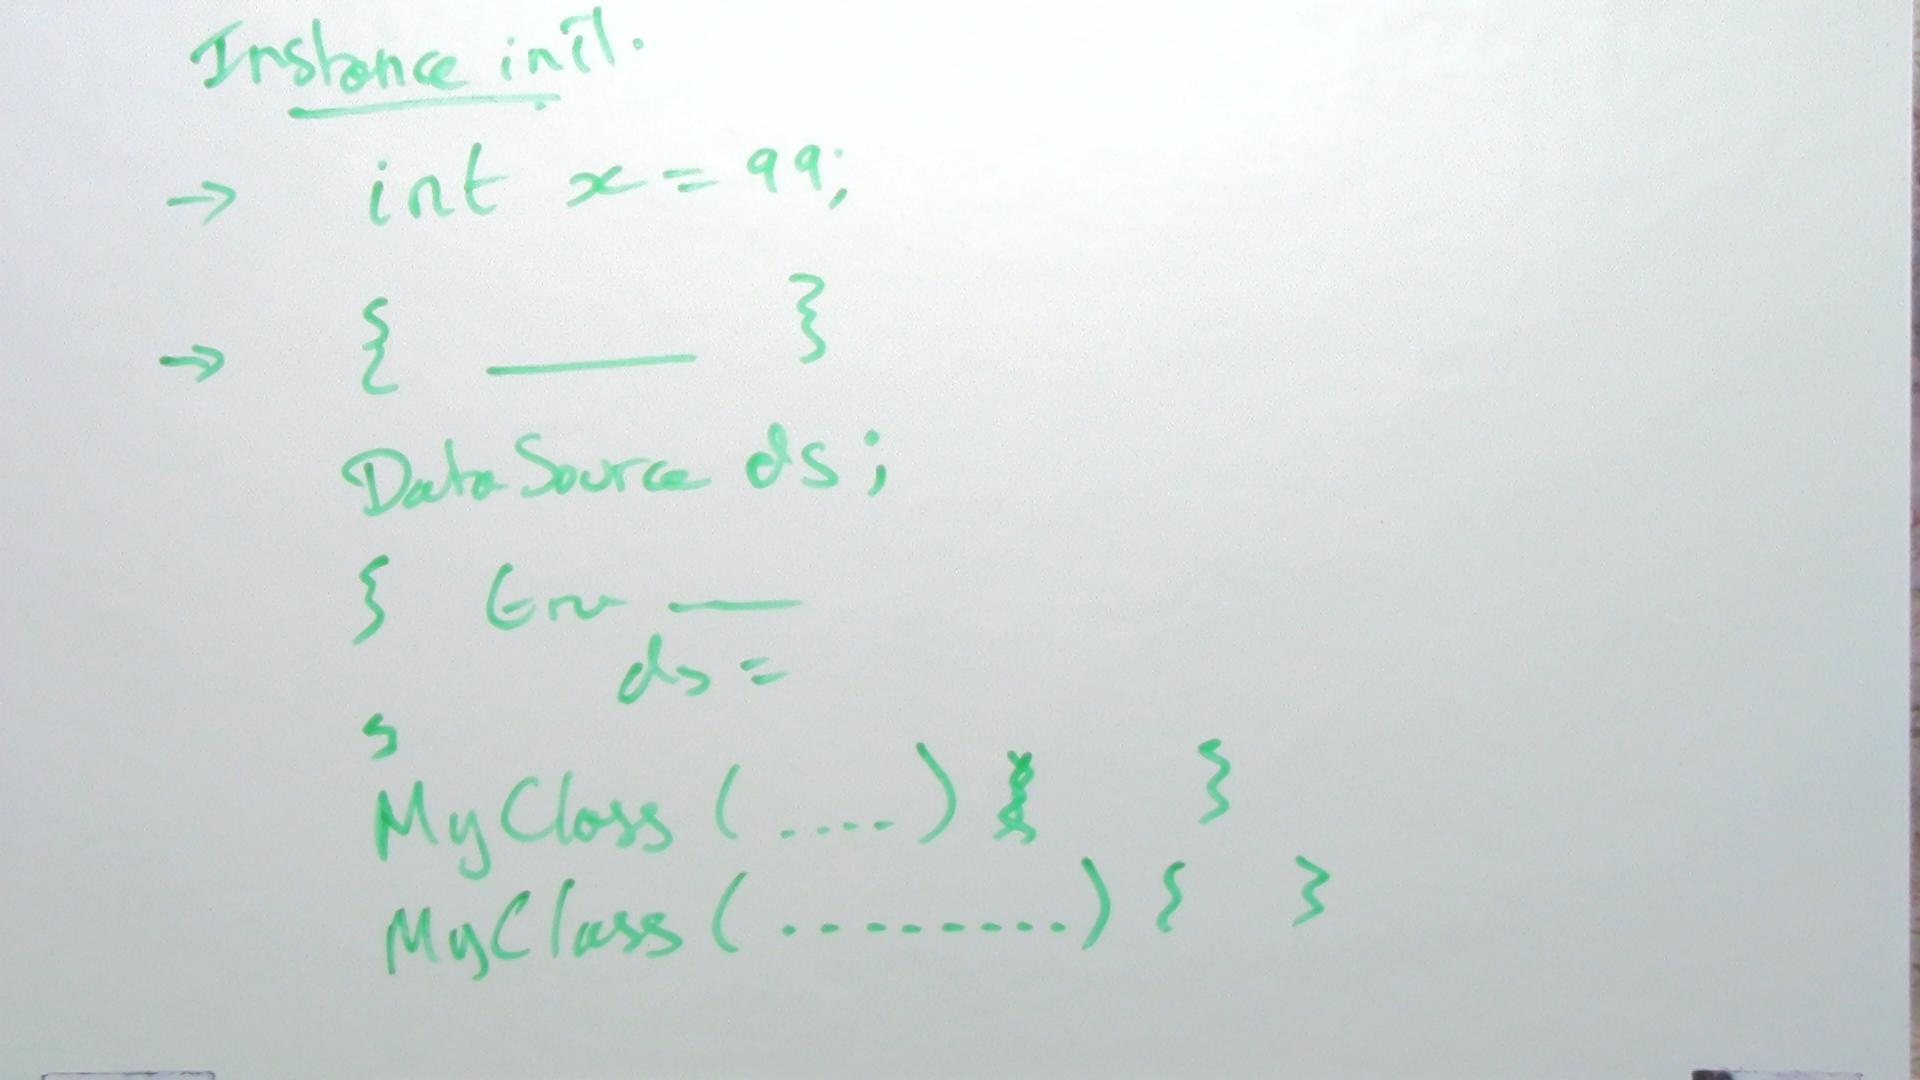 Instance init.
→ int x = 99;
→ { ____ }
DataSource ds;
{ Env ___
ds =
}
MyClass (....) { }
MyClass (.........) { }